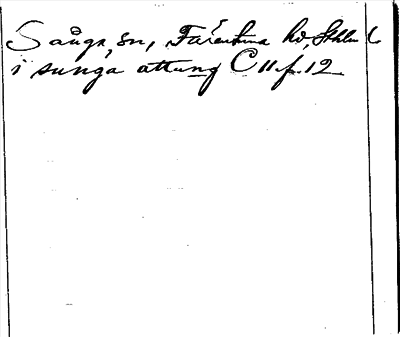 Sånga, sn, Färentuna hd, Sthlm l
i sunga attung C 11 f. 12